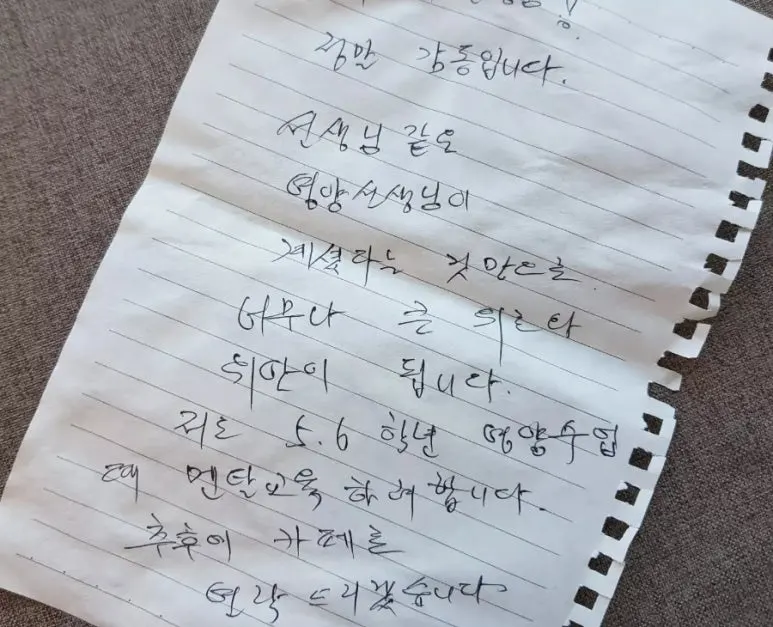 정말 감동입니다.
선생님 같은
영양선생님이
계셨다는 것만으로
너무나 큰 위로다
위안이 됩니다.
저도 5.6 학년 영양수업
때 멘탈교육 하려합니다.
추후에 카페로
연락드리겠습니다